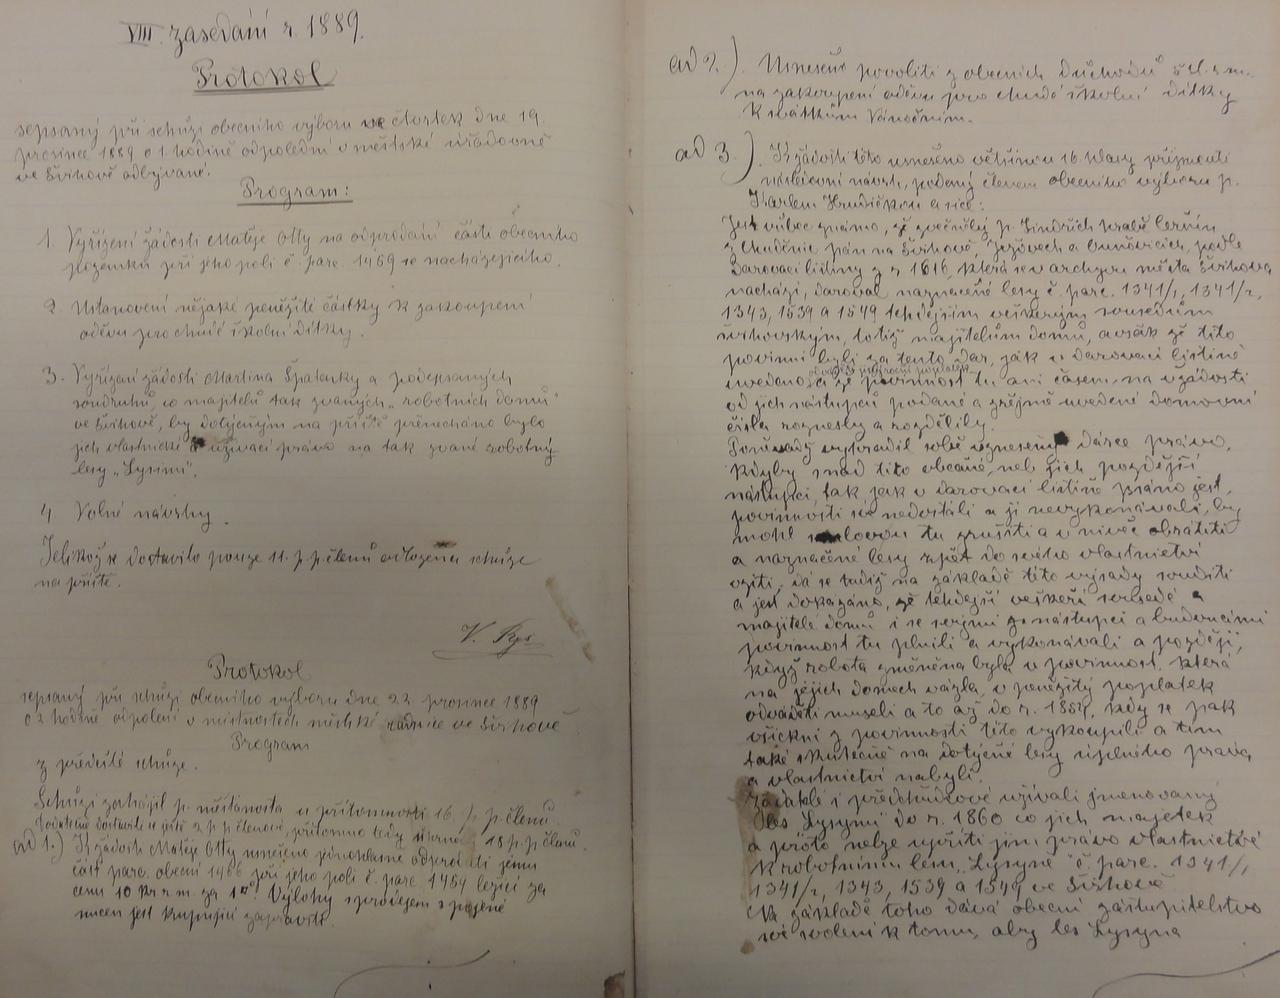 VIII. zasedání r. 1889.
Protokol
sepsaný při schůzi obecního výboru ve čtvrtek dne 19.
prosince 1889 o 1. hodině odpolední v městské úřadovně
ve Švihově odbývané.
Program:
1. Vyřízení žádosti Matěje Otty na odprodání části obecního
pozemku při jeho poli č. parc. 1469 se nacházejícího.
2. Ustanovení nějaké peněžité částky k zakoupení
oděvu pro chudé školní dítky.
3. Vyřízení žádosti Martina Špalenky a podepsaných
soudruhů, co majitelů tak zvaných „robotních domů"
ve Švihově, by dotyčeným na příště přenecháno bylo
jich vlastnické a užívací právo na tak zvané robotný
lesy „Lysini".
4. Volné návrhy.
Jelikož se dostavilo pouze 11. p. p. členů odložena schůze
na příště.
V. Rys
Protokol
sepsaný při schůzi obecního výboru dne 22. prosince 1889
o 2 hodině odpolení v místnostech městské radnice ve Švihově
Program
z předešlé schůze.
Schůzi zahájil p. měšťanosta u přítomnosti 16 p. p. členů.
Dodatečně dostavili se ještě 2 p. p. členové, přítomno tedy 18 p. p. členů.
ad 1.) K žádosti Matěje Otty usnešeno jednohlasně odprodati jemu
část parc. obecní 1466 při jeho poli č. parc. 1469 ležící za
cenu 10 kr r. m. za 1 □°. Výlohy s prodejem spojené
nucen jest kupující zapraviti.
ad 2.) Usnešeno povoliti z obecních důchodů 5 zl. r. m.
na zakoupení oděvu pro chudé školní dítky
k svátkům Vánočním.
ad 3.) K žádosti této usnešeno většinou 16 hlasy přijmouti
následovní návrh, podaný členem obecního výboru p.
Karlem Hrudičkou a sice:
Jest vůbec známo, že zvěčnělý p. Jindřich hrabě Černín
z Chuděnic pán na Švihově, Jezovech a Dunovicích, podle
Darovací listiny z r. 1616, která se v archyvu města Švihova
nachází, daroval naznačené lesy č. parc. 1341/1, 1341/2,
1343, 1539 a 1549 tehdejším veškerým sousedům
švihovským, totiž majitelům domů, avšak že tito
povinni byli za tento dar, jak v darovací listině
uvedeno, a že povinnost tu ani časem, na vžádosti
od jich nástupců podané a zřejmě uvedené domovní
čísla roznesly a rozdělily.
Poněvadž vyhradil sobě vznešený dárce právo,
kdyby snad tito občané, neb jich pozdější
nástupci, tak, jak v darovací listině psáno jest,
povinnosti své nedostáli a ji nevykonávali, by
mohl smlouvu tu zrušiti a v nivec obrátiti
a naznačené lesy zpět do svého vlastnictví
vzíti, dá se tudíž na základě této výsady souditi
a jest dokázáno, že tehdejší veškeří sousedé a
majitelé domů i se svými nástupci a budoucími
povinnost tu plnili a vykonávali a později,
když robota změněna byla v povinnost, která
na jejich domech vázla, v peněžitý poplatek
odváděti museli a to až do r. 1854, kdy se pak
všickni z povinnosti této vykoupili a tím
také skutečně na dotyčné lesy úplného práva
a vlastnictví nabyli.
Žadatelé i předchůdcové užívali jmenovaný
les Lysynu do r. 1860 co jich majetek
a proto nelze upříti jim právo vlastnictví
k robotnímu lesu „Lysyně" č. parc. 1341/1,
1341/2, 1343, 1539 a 1549 ve Švihově
Na základě toho dává obecní zastupitelstvo
své svolení k tomu, aby les Lysyna